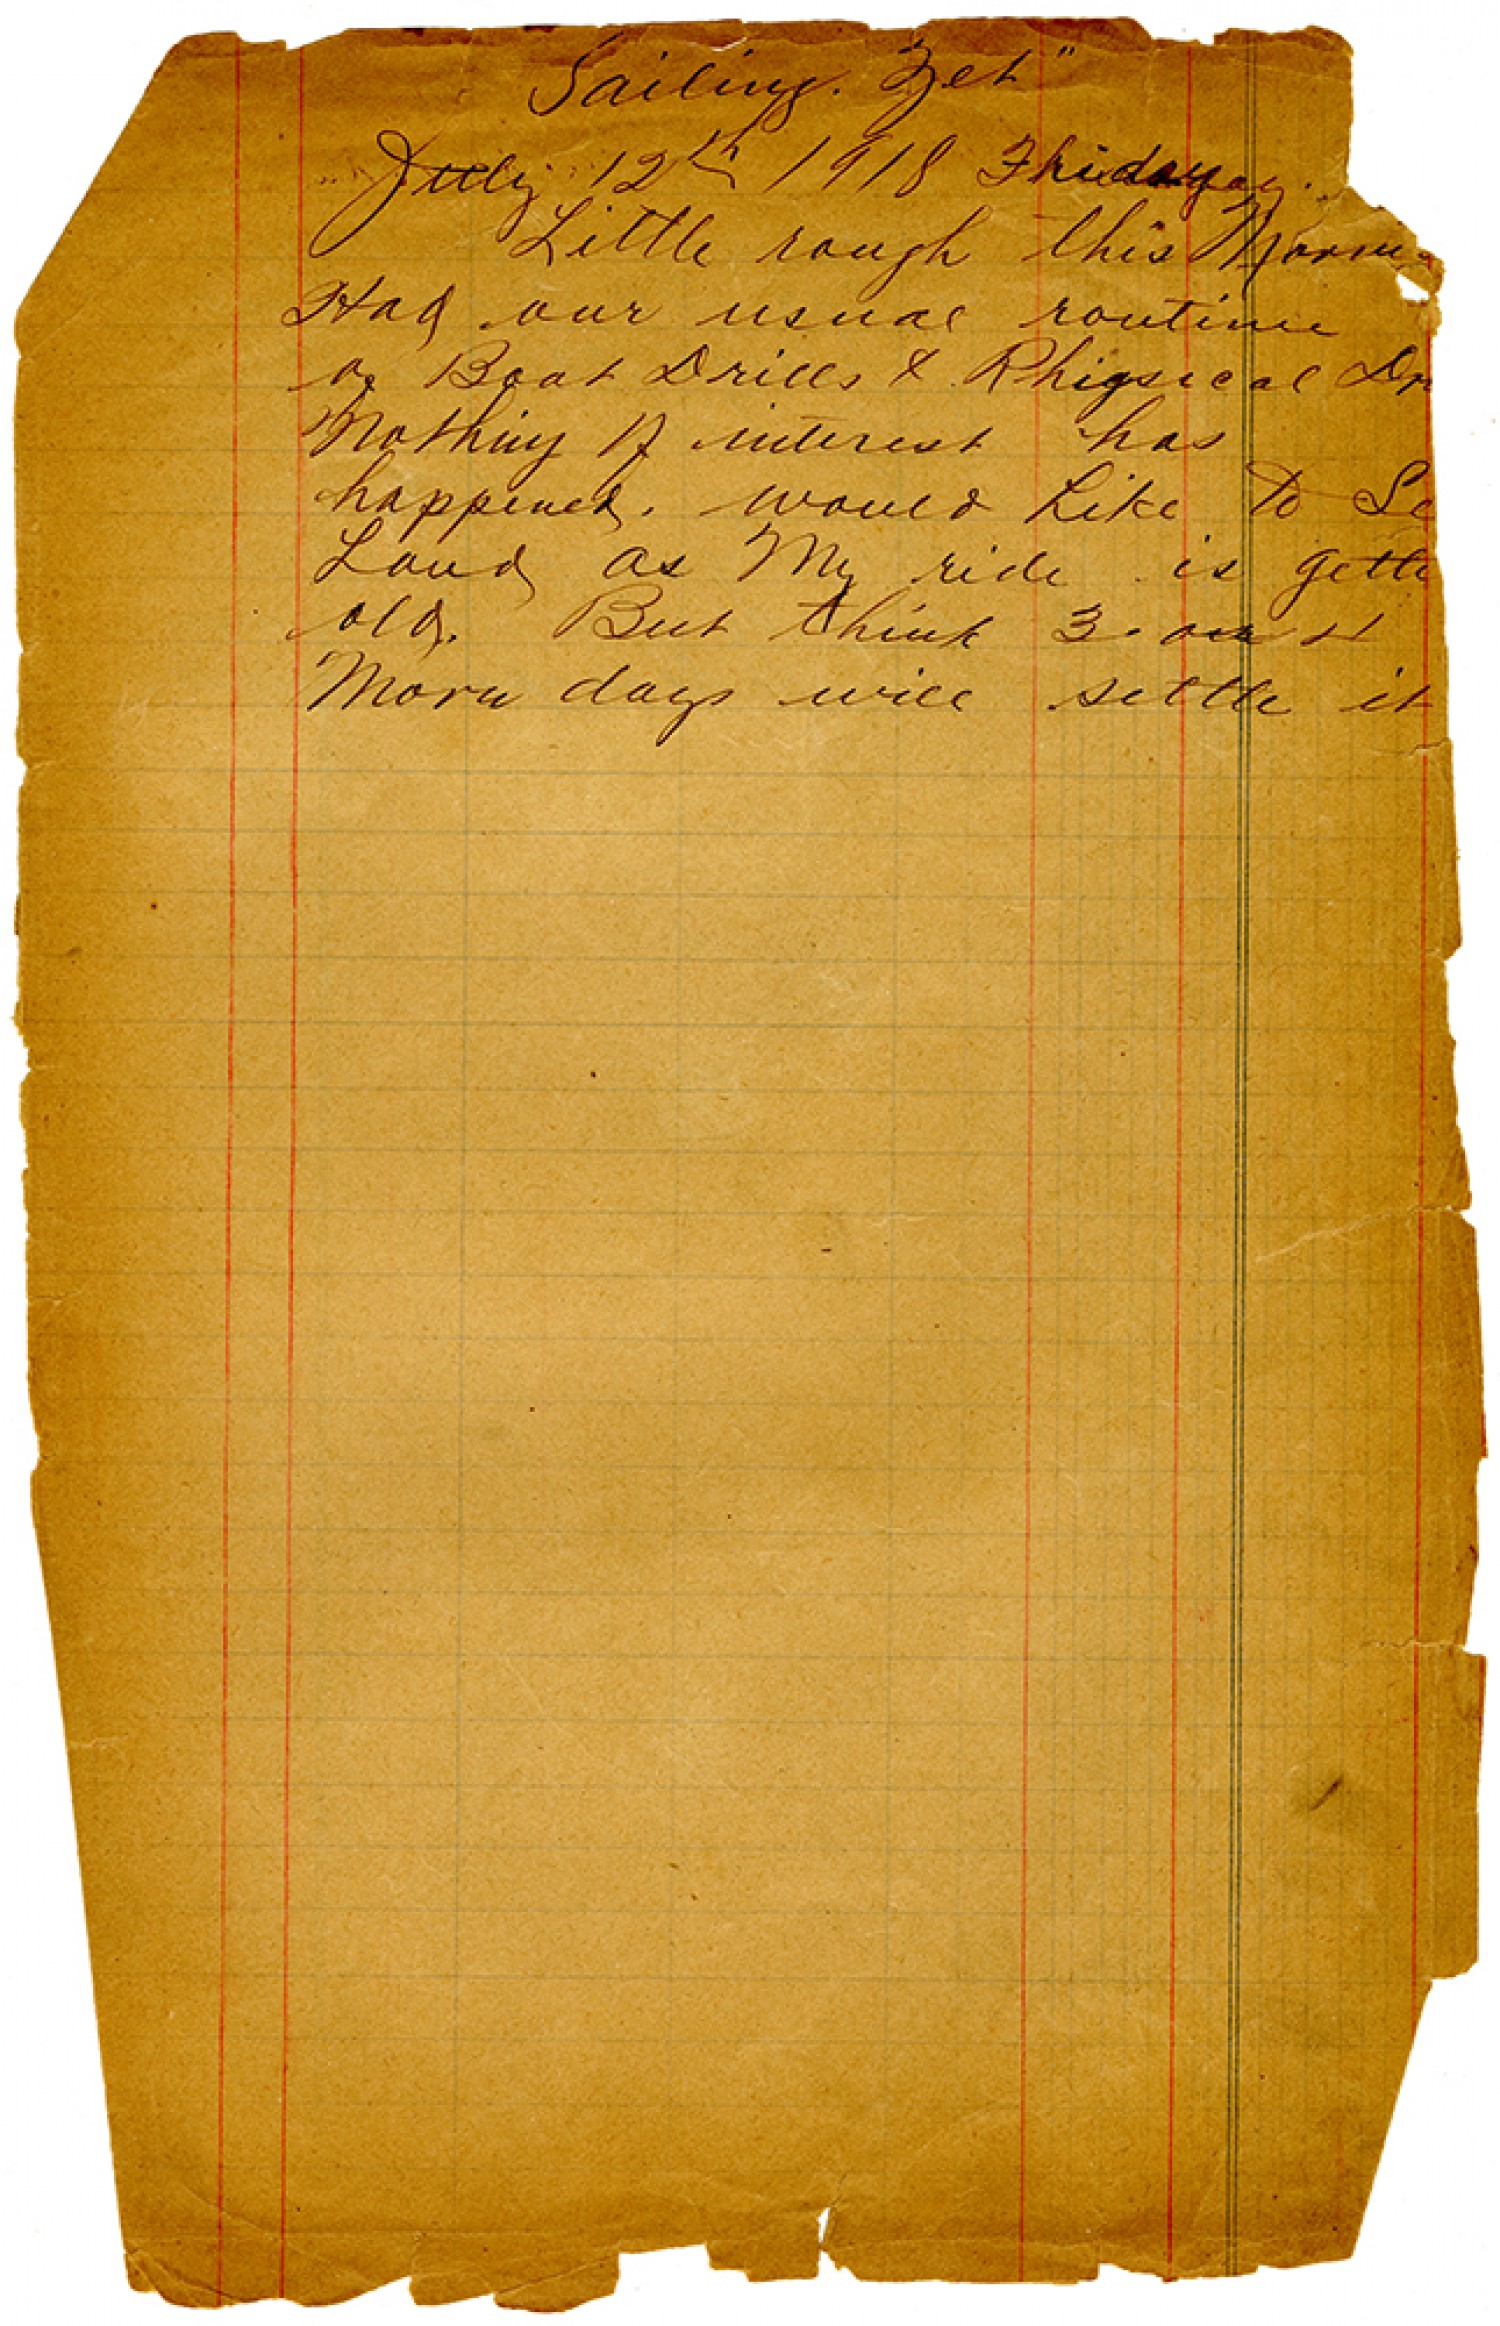 Sailing. Yet"
July 12th 1918 Friday.
Little rough this Morn
Had our usual routine
of Boat Drills & Phigsical Dr
Nothing of interest has
happened. would Like to Se
Land as My ride is gett
old. But think 3 or 4
More days will settle it